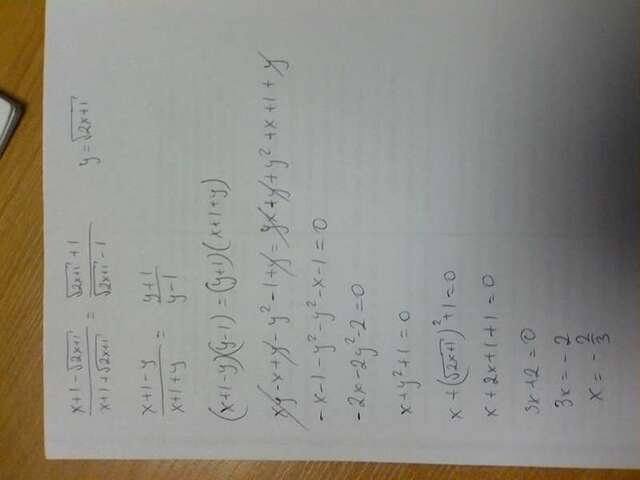 (x+1-√(2x+1))/(x+1+√(2x+1)) = (√(2x+1)+1)/(√(2x+1)-1)    y=√(2x+1)
(x+1-y)/(x+1+y) = (y+1)/(y-1)
(x+1-y)(y-1)=(y+1)(x+1+y)
xy-x+y-y²-1+y=yx+y+y²+x+1+y
-x-1-y²-y²-x-1=0
-2x-2y²-2=0
x+y²+1=0
x+(√(2x+1))²+1=0
x+2x+1+1=0
3x+2=0
3x=-2
x=-2/3